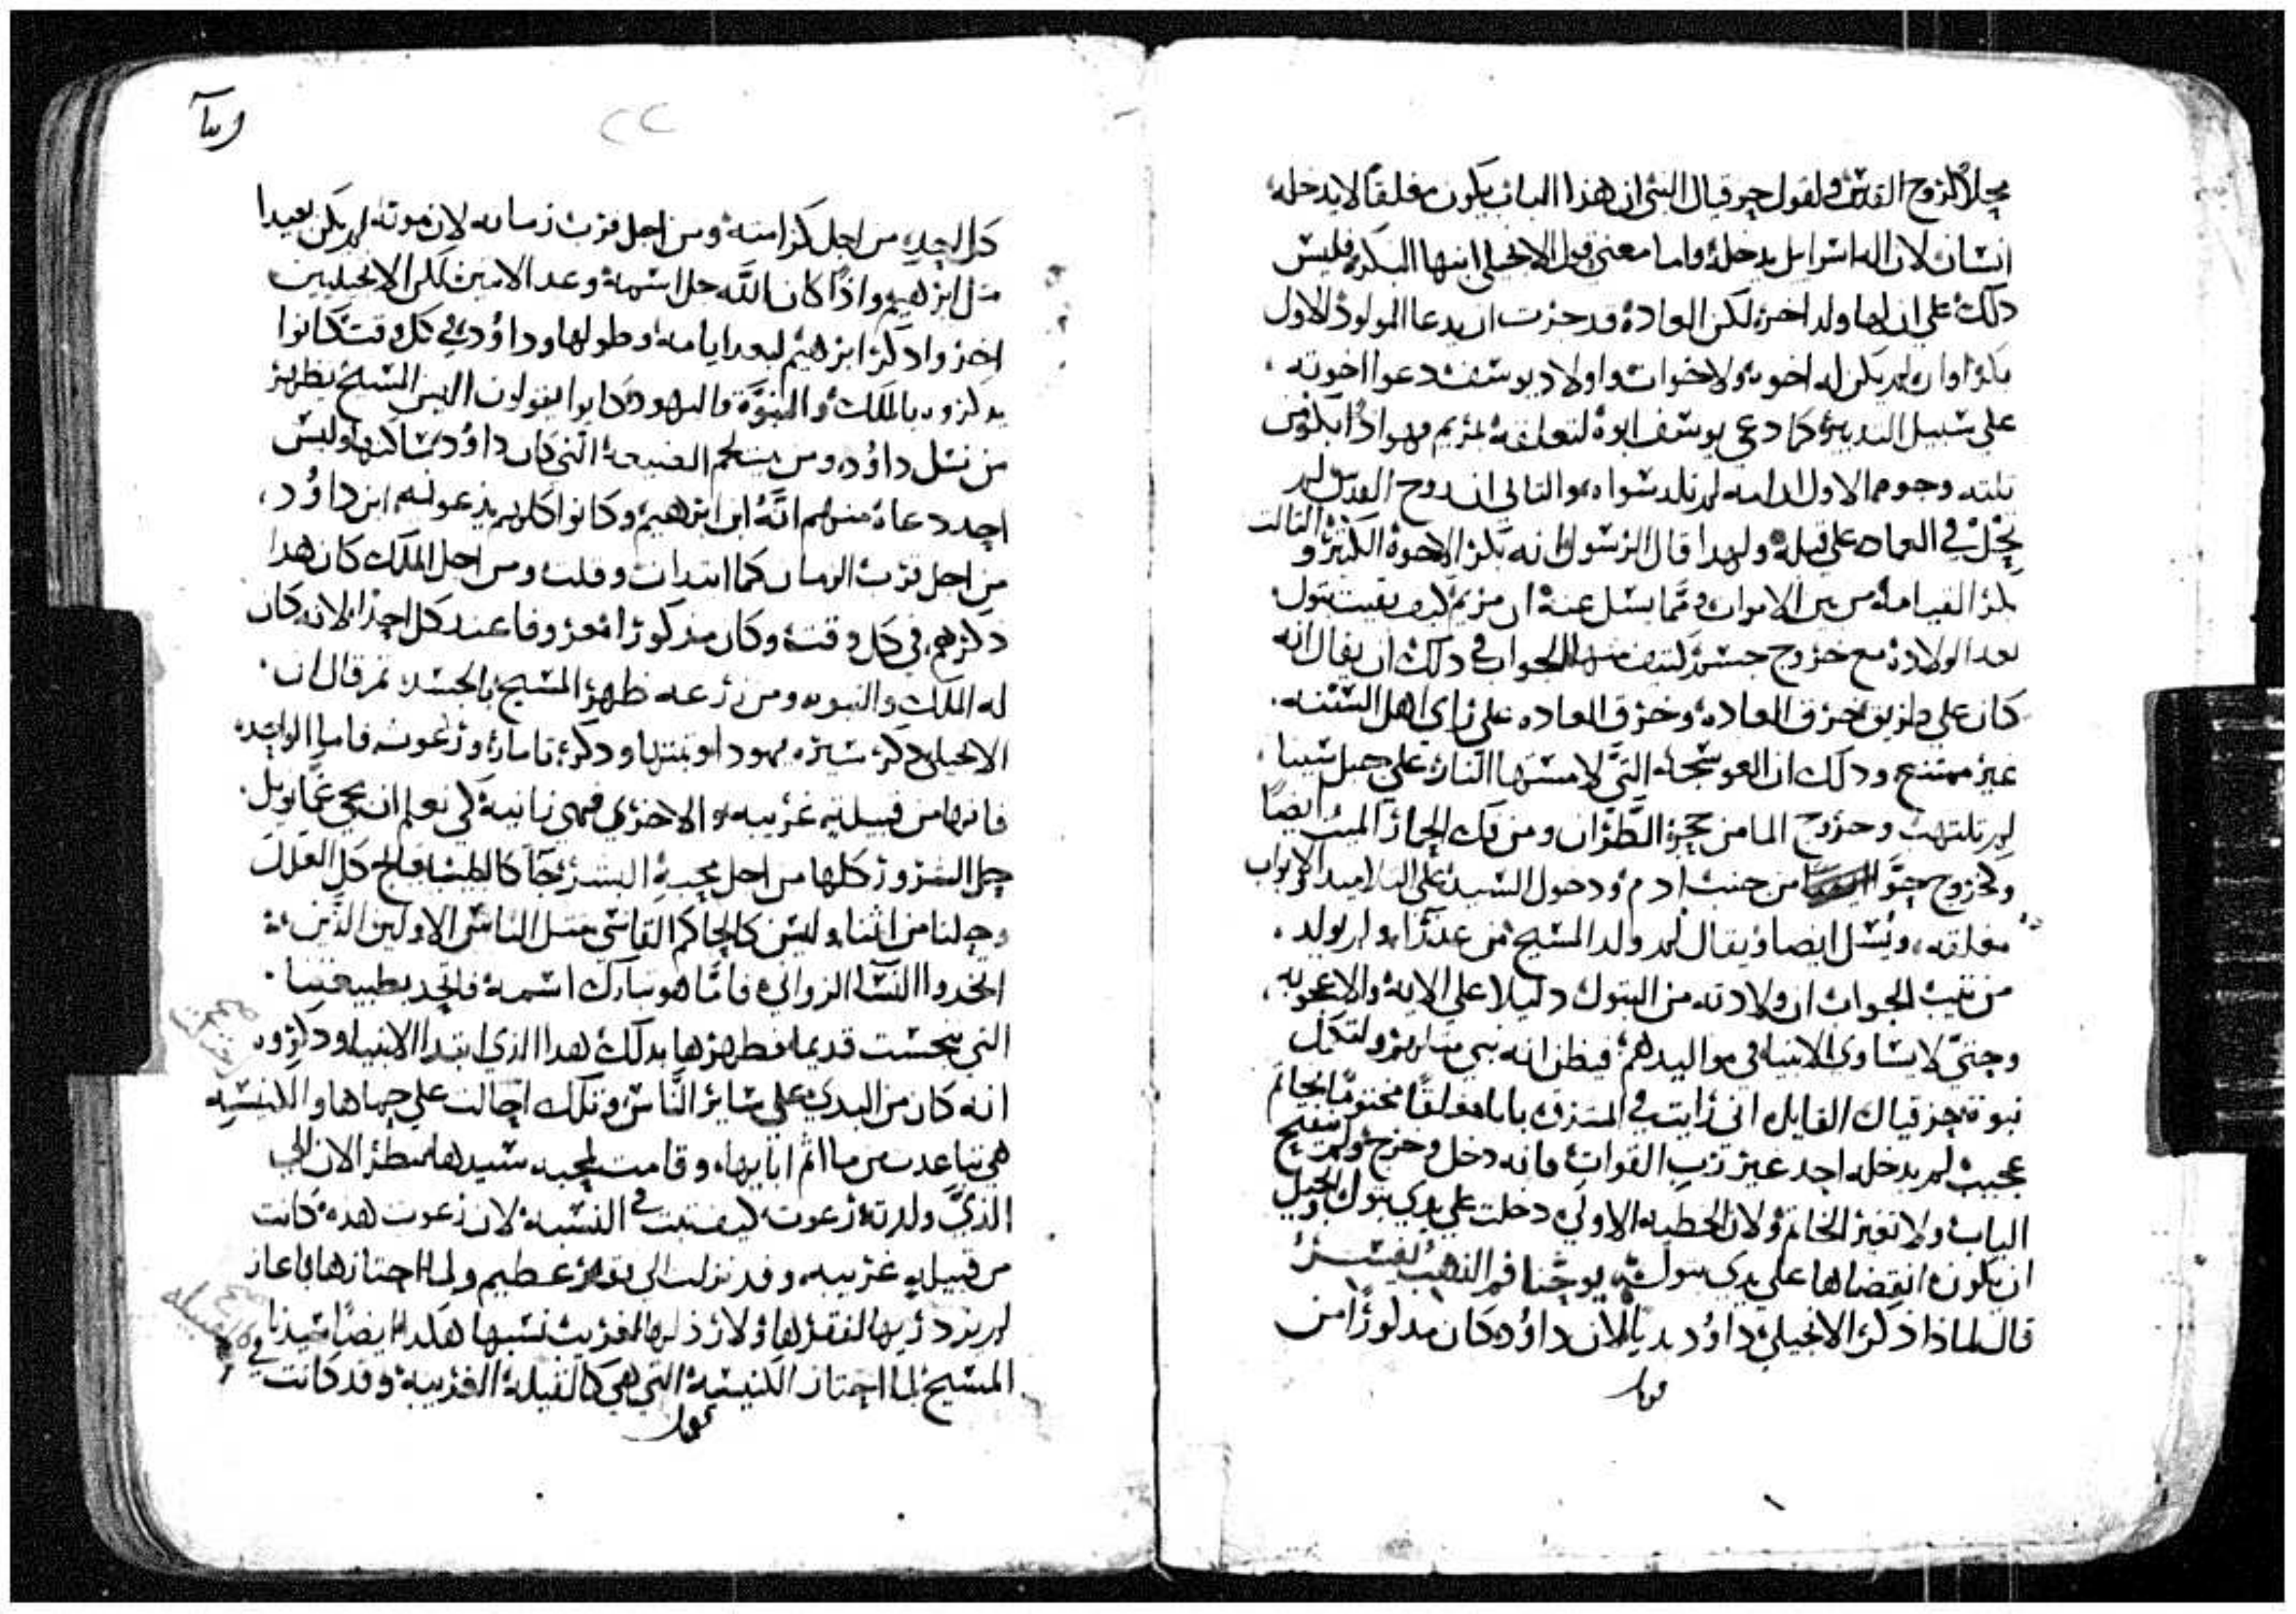 محلا لروح القدس ولقول حزقيال النبي ان هذا الباب يكون مغلقا لا يدخله
انسان لان اله اسرايل يدخله واما معنى قول الانجيلي ابنها البكر فليس
دلك على ان لها ولد اخر لكن العادة قد جرت ان يدعا المولود الاول
بكرا وان لم يكن له اخوه ولا اخوات واولاد يوسف دعوا اخوته
على سبيل التدبير كما دعي يوسف ابوة لتعلقه بمريم وهو اذا بكر من
تلته وجوه الاول ان امه لم تلد سواه والتاني ان روح القدس لم
يحل في العماد على قبله ولهدا قال الرسول انه بكر الاخوة الكثير والتالت
بكر القيامه من بين الاموات ومما يسل عنه ان مريم كيف بقيت بتول
بعد الولادة مع خروج جسم كتيف منها الجواب في دلك ان يقال انه
كان على طريق خرق العادة وخرق العاده على راي اهل السنه
غير ممتنع ودلك ان العوسجه التي لامستها النار على جبل سينا
لم تلتهب وخروج الما من حجرة الطران ومن فك الحمار الميت ايضا
وخروج حوا من جنب ادم ودخول السيد على التلاميد والابواب
مغلقه ويسل ايضا ويقال لم ولد المسيح من عدرا ولم يولد
من تيب الجواب ان ولادته من البتول دليلا على الاية والاعجوبه
وحتى لا يساوى الانبيا في مواليدهم فيظن انه نبي متلهم ولتكمل
نبوة حزقيال القايل اني رايت في المشرق بابا مغلقا مختوما بخاتم
عجيب لم يدخله احد غير رب القوات فانه دخل وخرج ولم ينفتح
الباب ولا تغير الخاتم ولان الخطيه الاولى دخلت على يدي بتول وجب
ان يكون انقضاها على يدي بتول يوحنا فم الذهب يفسر
قال لماذا ذكر الانجيلي داؤد بديا لان داؤد كان مدكورا من
كل احد من اجل كرامته ومن اجل قرب زمانه لان موته لم يكن بعيدا
متل ابرهيم واذا كان الله جل اسمه وعد الاتنين لكن الانجيليين
اخروا دكر ابرهيم لبعد ايامه وطولها وداؤد في كل وقت كانوا
يدكروه بالملك والنبوة واليهود كانوا يقولون اليس المسيح يظهر
من نسل داؤد ومن بيتلحم الضيعة التي كان داؤد ساكنها وليس
احد دعاه منهم انه ابن ابرهيم وكانوا كلهم يدعونه ابن داؤد
من اجل قرب الزمان كما ابتدات وقلت ومن اجل الملك كان هدا
ذكرهم في كل وقت وكان مذكورا معروفا عند كل احد لانه كان
له الملك والنبوه ومن زرعه ظهر المسيح بالجسد تم قال ان
الانجيلي دكر سيره يهودا وبنتها ودكر تامار وراعوت فاما الواحده
فانها من قبيله غريبه والاخرى فهي زانية لكي نعلم ان يحي عمانويل
حل الشرور كلها من اجل محبة البشر جا كالطبيب فعالج كل العلل
وحلنا من اتمنا وليس كالحاكم القاسي متل الناس الاولين الذين
اتخدوا النسا الزواني فاما هو تبارك اسمه فاتحد بطبيعتنا
التي نجست قديما فطهرها بدلك هدا الذي ابتدا الانبيا ودكروه
انه كان من البدي على ساير الناس وتلك احالت على حماها والكنيسه
هي تباعدت من ما اتم ابايها وقامت لمحبه سيدها فتنظر الان الى
الذي ولدته راعوت كيف تبت في النسبة لان راعوت هده كانت
من قبيله غريبه وقد نزلت الى فقر عظيم ولما اختارها باعاز
لم يزدريها لفقرها ولا رذلها لغريب نسبها هكدا ايضا سيدنا
المسيح لما اختار الكنيسة التي هي كالقبيلة الغريبة وقد كانت في